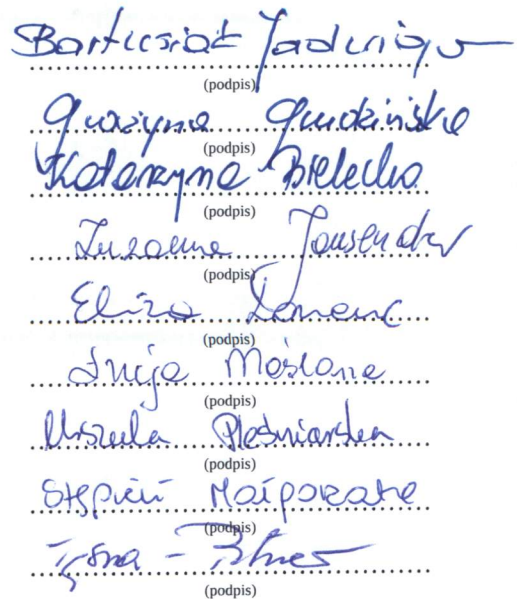 Bartusiak Jadwiga
(podpis)
Grażyna Grudzińska
(podpis)
Katarzyna Bielecka
(podpis)
Zuzanna
(podpis)
Eliza
(podpis)
Łucja Maślana
(podpis)
Urszula Pleśniarska
(podpis)
Stępień Małgorzata
(podpis)
(podpis)